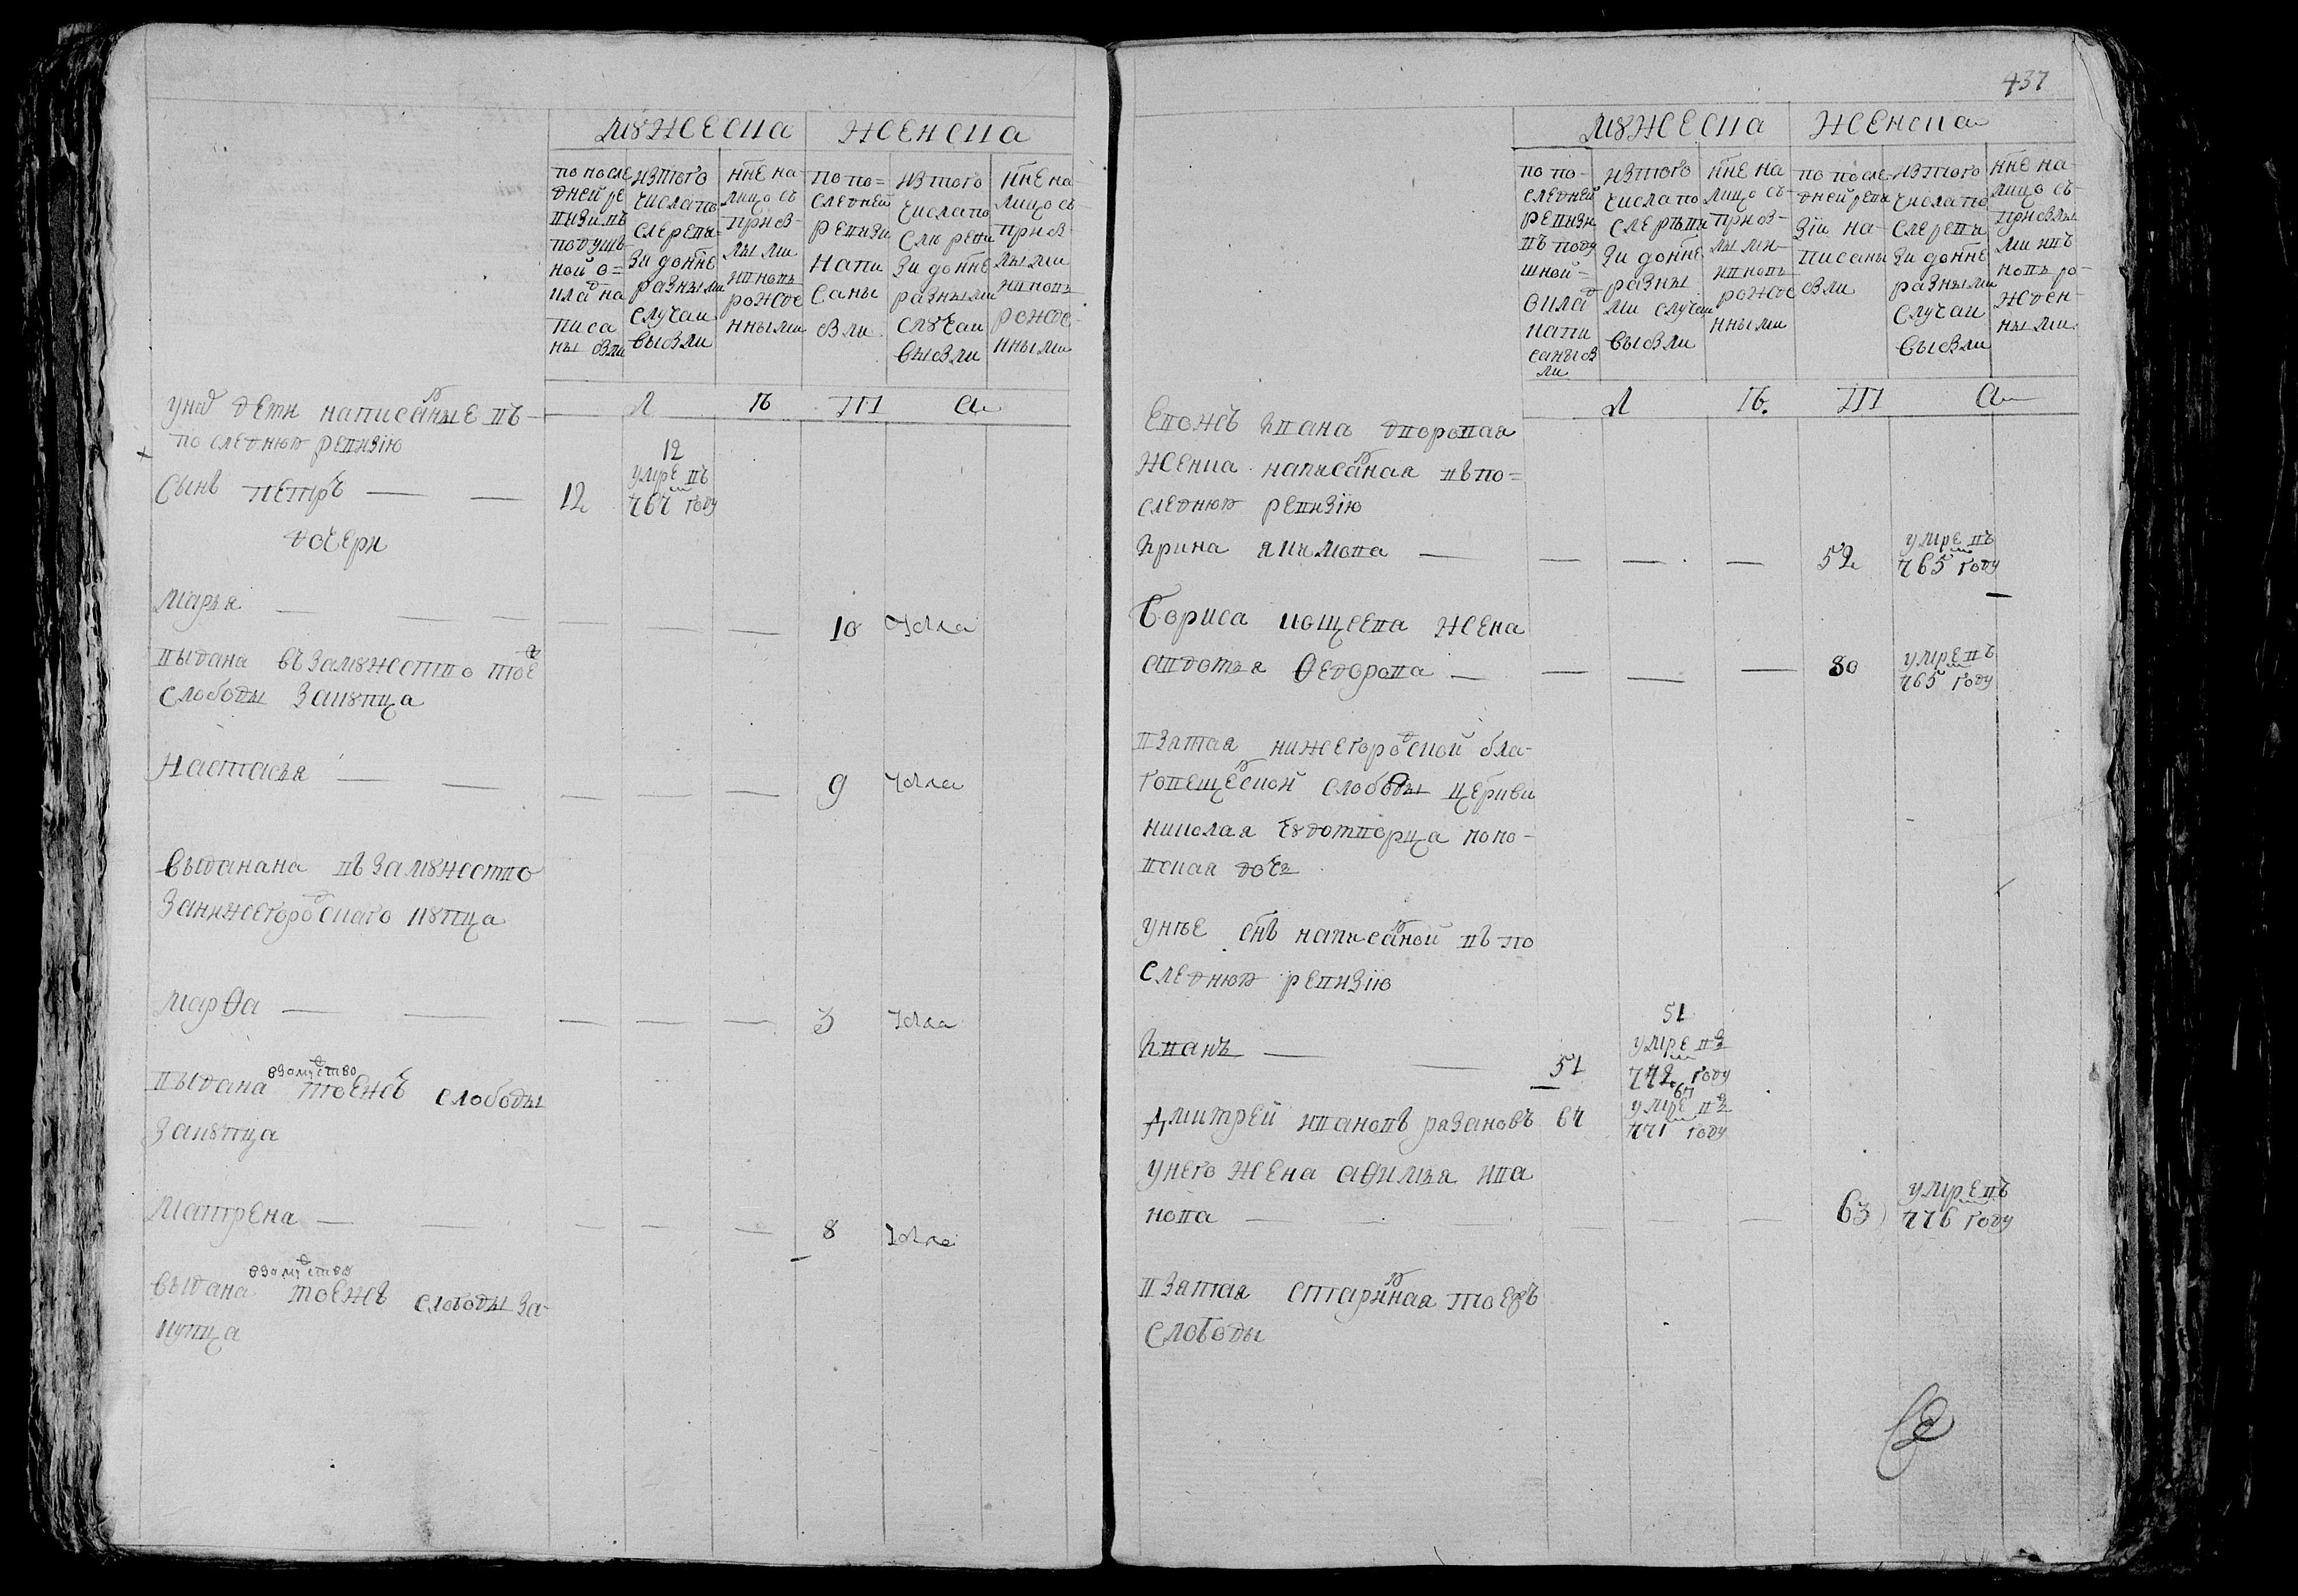 мꙋжеска женска
по после
дней ре
визи въ
подуш
ной о=
кладъ на
писа
ны были
изтого
числа по
сле реви
зи до нне
разными
случаи
выбыли
нне на
лицо съ
прибы
лыми
и вновь
рожде
нными
по по=
следней
ревизи
напи
саны
были
изтого
числа по
сле реви
зи до нне
разными
слꙋчаи
выбыли
нне на
лицо съ
прибы
лыми
и вновь
рожде-
нными
Л Б Ш А
у них дети написаные въ
последнюю ревизiю
12
Сынъ петръ — — 12 умре въ
767 году
дочери
марья — 10 —
выдана въ замꙋжество тоеж
слободы за кꙋпца
Настасья — 9 —
выданана въ замꙋжество
за нижегородскаго кꙋпца
марѳа — 3 —
выдана взамуство тоежъ слободы
за кꙋпца
матрена — 8 —
выдана взамуство тоежъ слободы за
купца
437
мꙋжеска женска
по по-
следней
ревизи
въ поду
шной=
окладъ
напи
саны бы
ли
изтого
числа по
сле реви
зи до нне
разны
ми случаи
выбыли
нне на
лицо съ
прибы
лыми
и вновь
рожде
нными
по после
дней реви
зiи на
писаны
были
изтого
числа по
сле реви
зи до нне
разными
случаи
выбыли
нне на
лицо съ
прибылы
ми и въ
новь ро-
жден-
ными
Л Б. Ш А
Евожъ ивана второвая
женка написаная въ по=
следнюю ревизiю
Ирина якимова — 52 умре въ
765 году
Бориса кощеева жена
авдотья Ѳедорова — 80 умре въ
765 году
взятая нижегородской бла-
говещенской слободы церкви
николая чꙋдотворца попо-
вская дочь
у нее снъ написаной въ по
следнюю ревизiю
51
Иванъ — 51 умре въ
772 году
67
Дмитрей ивановъ рязановъ 67 умре въ
771 году
у него жена аѳимья ива
нова — 63 умре въ
776 году
взятая стариная тоежъ
слободы